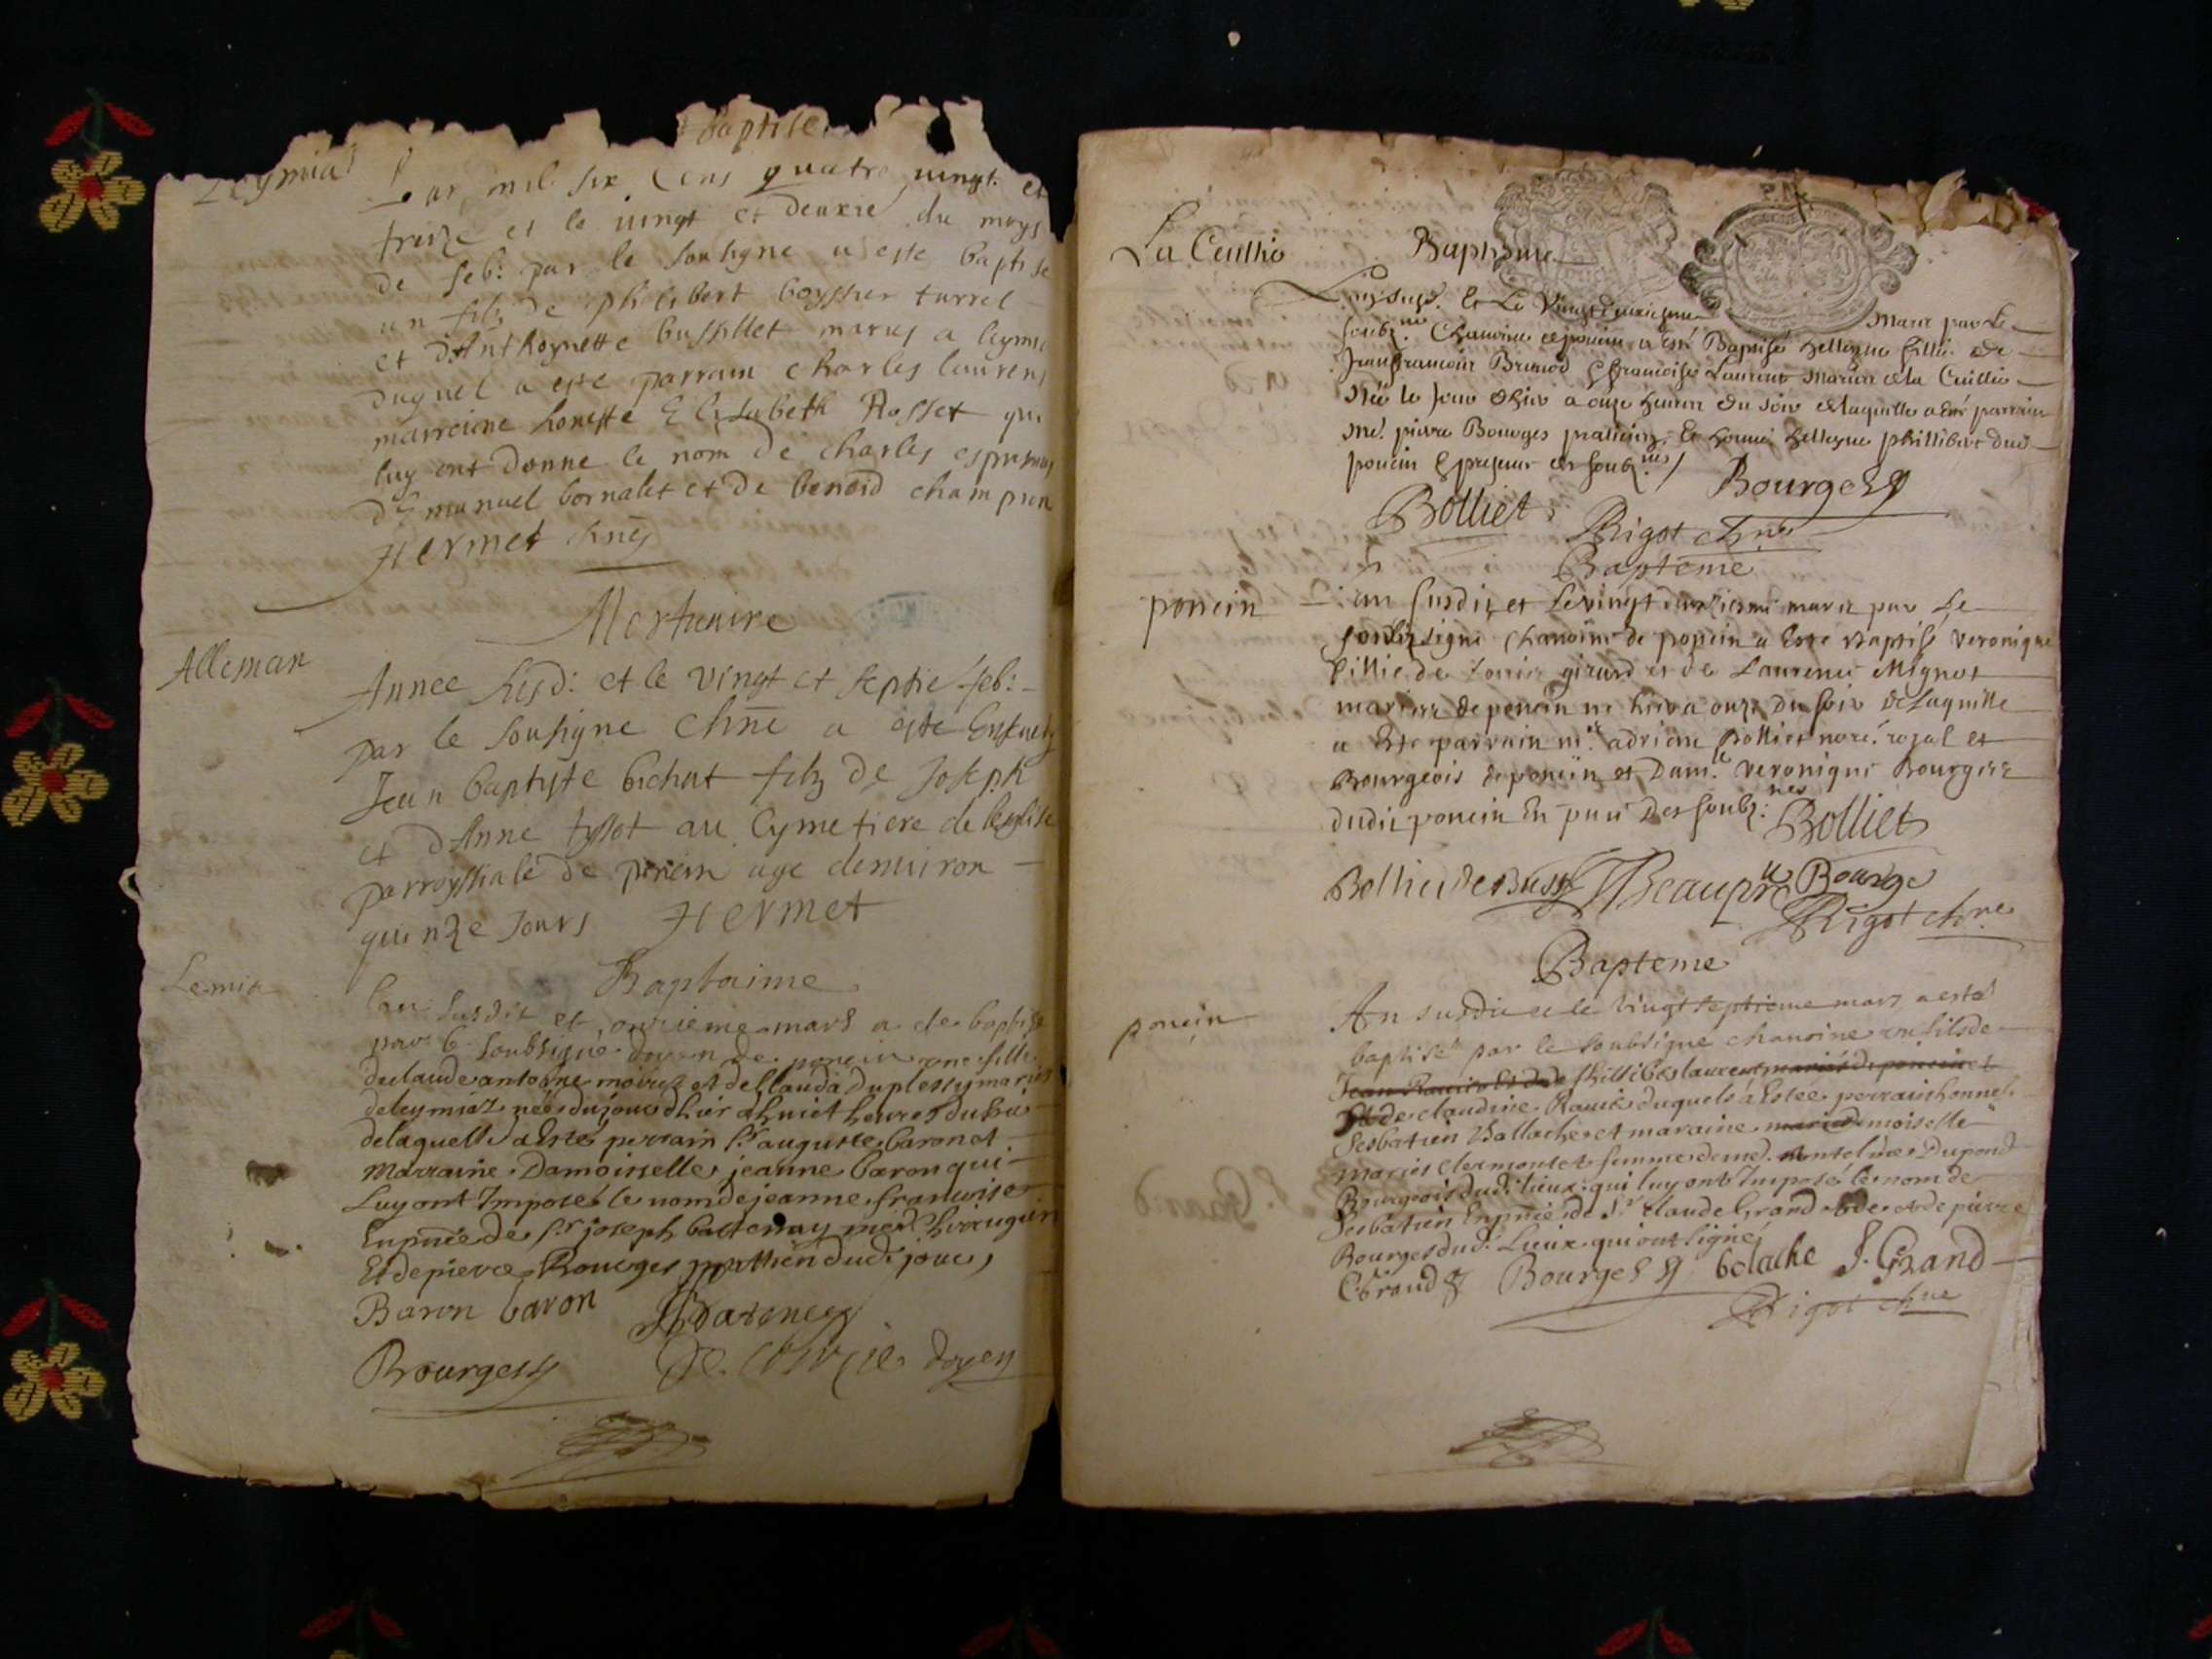 baptise
Leymia
L'an mil six cens quatre vingt et
treize et le vingt et deuxie du moys
de feb: par le soubsigne a este baptise
un filz de philibert boyssier turrel
et d'Anthoynette bussillet maries a leymia
duquel a este parrain charles laurens
marreine honeste Elisabeth Rosset qui
luy ont donne le nom de charles es presences
d'Emanuel bornalet et de benoid champion
Hermet chne
Mortuaire
Alleman
Annee susd: et le vingt et septie feb:
par le sousigne chne a este Ensevely
Jean baptiste bichat filz de Joseph
et d'Anne tyssot au Cymetiere de leglise
parroyssiale de poncin age denviron
quinze Jours Hermet
Baptaime
Lemia
lan susdit et onzieme mars a ete baptise
par le soubsigné doyen de poncin une fille
de claude antoine et de Clauda duplessy maries
de leymiaz née du jour dhier a huict heures du soir
de laquelle a Esté perrain sr auguste baron et
Marraine Damoiselle jeanne baron qui
Luy ont Imposé le nom de jeanne francoise
En pnce de sr joseph me chirurgien
Et de pierre Bourges pratitien dud: jour,
Baron baron
Bourges doyen
La Cuillio Baptesme
L'an susd. Et Le Vingt deuxiesme Mars par Le
soubz.né Chanoine de poncin a Esté Baptisé hellayne fillie de
Jean francois Brunod & francoise Laurent Mariés de la Cuillio
Née le Jour d'hier a onze heures du soir de laquelle a Esté parrain
me. pierre Bourges praticien, Et honne hellayne phillibert dud
poncin & presens les soubz.nés /
Bourges
Bolliet
Rigot chne
Bapteme
poncin
L'an susdit et le vingt deuxiesme mars par le
soubsigné chanoine de poncin a Esté Baptisé Veronique
fillie de Louis girard et de Laurence Mignot
mariez de poncin ne hier a onze du soir de laquille
a Este parrain me adrien Bolliet nore. royal et
Bourgeois de poncin et Dam.le Veronique Bourgeois
dudit poncin En pnce Des soubz:nes Bolliet
Bolliet de Bussy Beaupre Bourge
Rigot chne
Bapteme
poncin
An susdit et le vingt septieme mars a esté
baptisé par le soubsigne chanoine un fils de
phillibes laurent mariés de poncin et
Et de claudine Ravis duquels à Estée perrain honnet
Sesbatien Ballache et maraine demoiselle
Marios Clermontet femme de med. Dupond
Bourgeois dudt lieux: qui luy ont Imposé le nom de
Sesbatien En pnce de Sr claude Grand et de pierre
Bourges dud: Lieux qui ont signé
C Grand Bourges belache S. Grand
Rigot chne